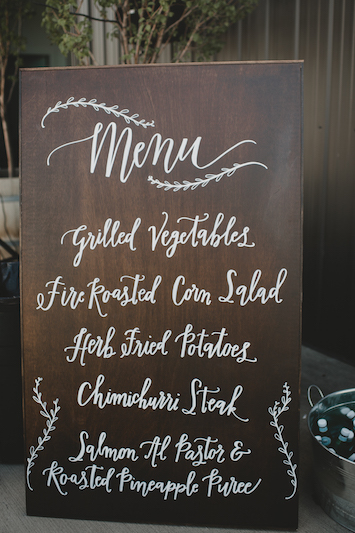 Menu
Grilled Vegetables
Fire Roasted Corn Salad
Herb Fried Potatoes
Chimichurri Steak
Salmon Al Pastor &
Roasted Pineapple Puree